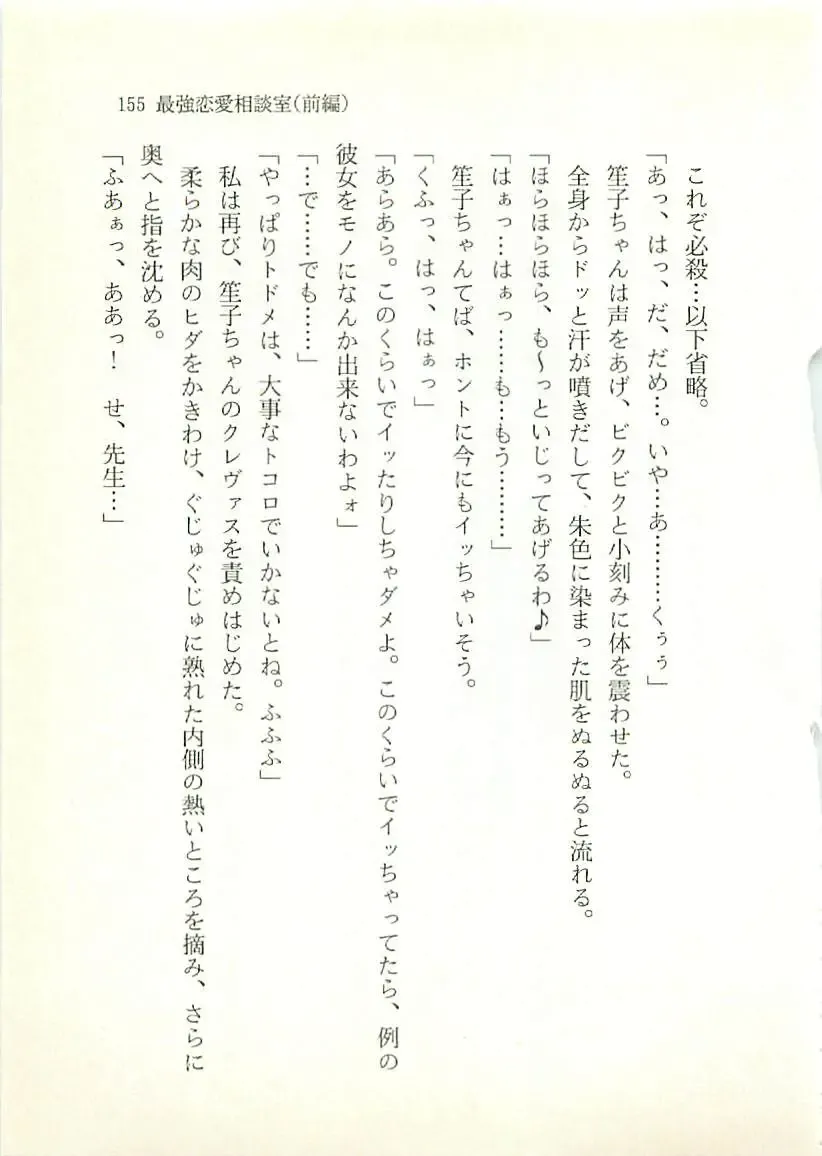 155 最強恋愛相談室(前編)
これぞ必殺…以下省略。
「あっ、はっ、だ、だめ…。いや…あ………くぅぅ」
笙子ちゃんは声をあげ、ビクビクと小刻みに体を震わせた。
全身からドッと汗が噴きだして、朱色に染まった肌をぬるぬると流れる。
「ほらほらほら、も〜っといじってあげるわ♪」
「はぁっ…はぁっ……も…もう………」
笙子ちゃんてば、ホントに今にもイッちゃいそう。
「くふっ、はっ、はぁっ」
「あらあら。このくらいでイッたりしちゃダメよ。このくらいでイッちゃってたら、例の
彼女をモノになんか出来ないわよォ」
「…で……でも……」
「やっぱりトドメは、大事なトコロでいかないとね。ふふふ」
私は再び、笙子ちゃんのクレヴァスを責めはじめた。
柔らかな肉のヒダをかきわけ、ぐじゅぐじゅに熟れた内側の熱いところを摘み、さらに
奥へと指を沈める。
「ふあぁっ、ああっ！　せ、先生…」